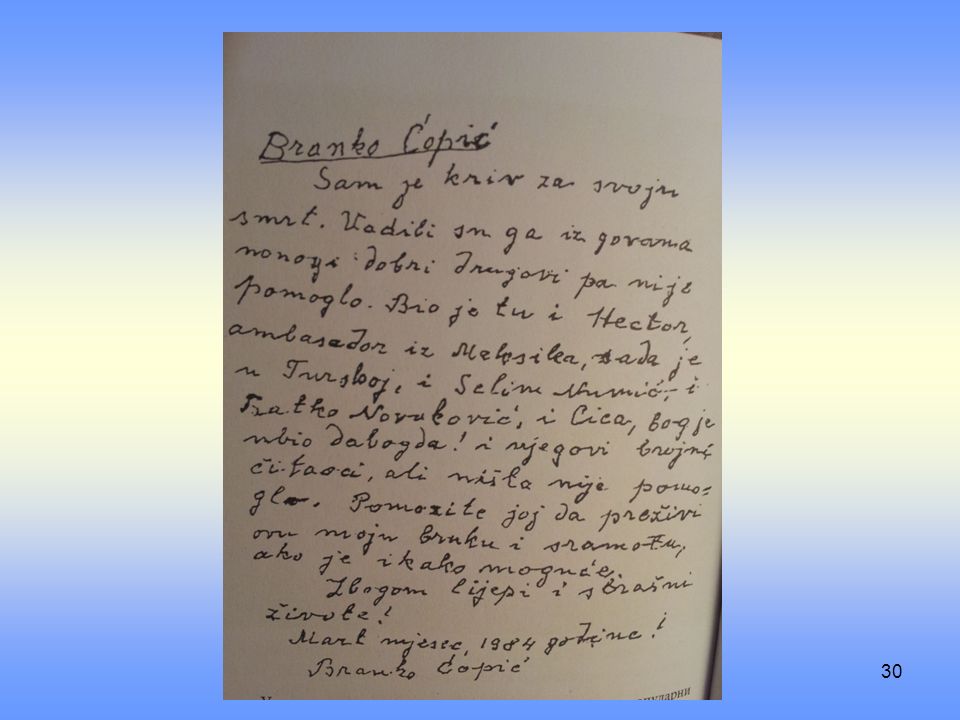 Branko Ćopić
Sam je kriv za svoju
smrt. Vadili su ga iz govana
mnogi dobri drugovi pa nije
pomoglo. Bio je tu i Hector,
ambasador iz Meksika, sada je
u Turskoj, i Selim Numić, i
Ratko Novaković, i Cica, bog je
ubio dabogda! i njegovi brojni
čitaoci, ali ništa nije pomo=
glo. Pomozite joj da preživi
ovu moju bruku i sramotu,
ako je ikako moguće.
Zbogom lijepi i strašni
živote!
Mart mjesec, 1984 godine!
Branko Ćopić
30